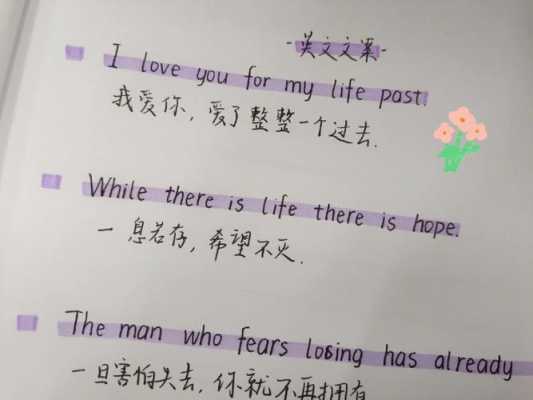 -英文文案-
I love you for my life past.
我爱你，爱了整整一个过去.
While there is life there is hope.
一息若存，希望不灭.
The man who fears losing has already
一旦害怕失去，你就不再拥有